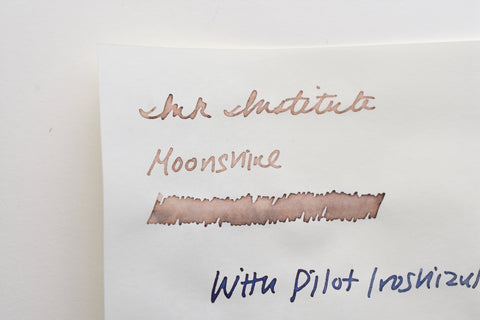 Ink Institute
Moonshine
With Pilot Iroshizu